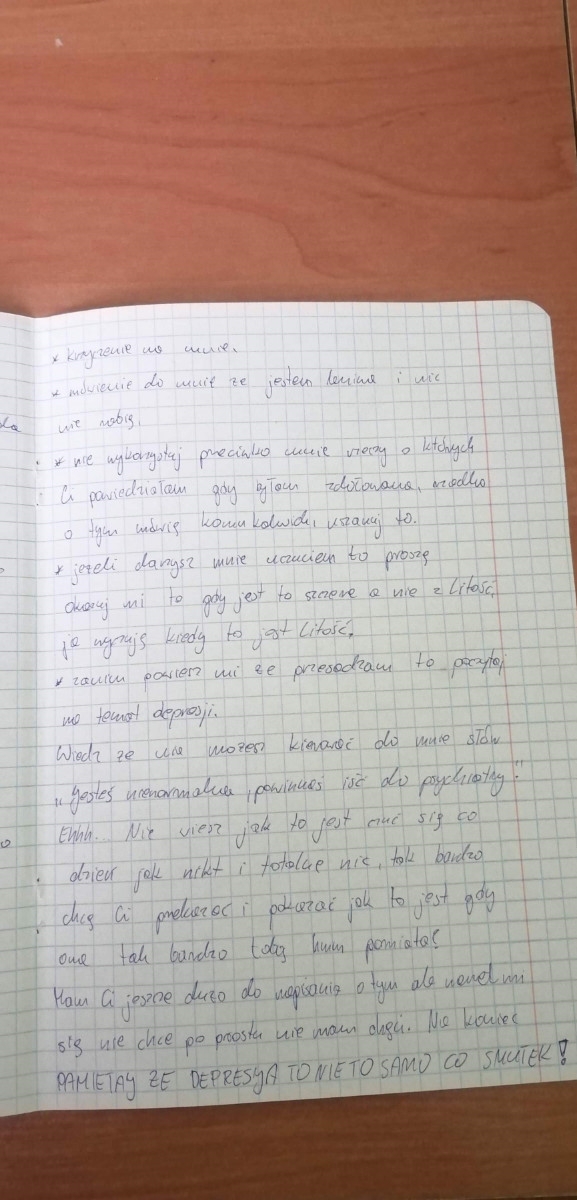 * krzyczenie na mnie.
* mówienie do mnie że jestem leniwa i nic
nie robię.
* nie wykorzystaj przeciwko mnie rzeczy o których
Ci powiedziałam gdy byłam zdołowana, rzadko
o tym mówię komukolwiek, uszanuj to.
* jeżeli darzysz mnie uczuciem to proszę
okazuj mi to gdy jest to szczere a nie z litości,
ja wyczuję kiedy to jest litość.
* zanim powiesz mi że przesadzam to poczytaj
na temat depresji.
Wiedz że nie możesz kierować do mnie słów
"Jesteś nienormalna, powinnaś iść do psychiatry".
Ehhh... Nie wiesz jak to jest czuć się co
dzień jak nikt i totalne nic, tak bardzo
chcę Ci przekazać i pokazać jak to jest gdy
ona tak bardzo tobą pomiata!
Mam Ci jeszcze dużo do napisania o tym ale nawet mi
się nie chce po prostu nie mam chęci. Na koniec
PAMIĘTAJ ŻE DEPRESJA TO NIE TO SAMO CO SMUTEK!